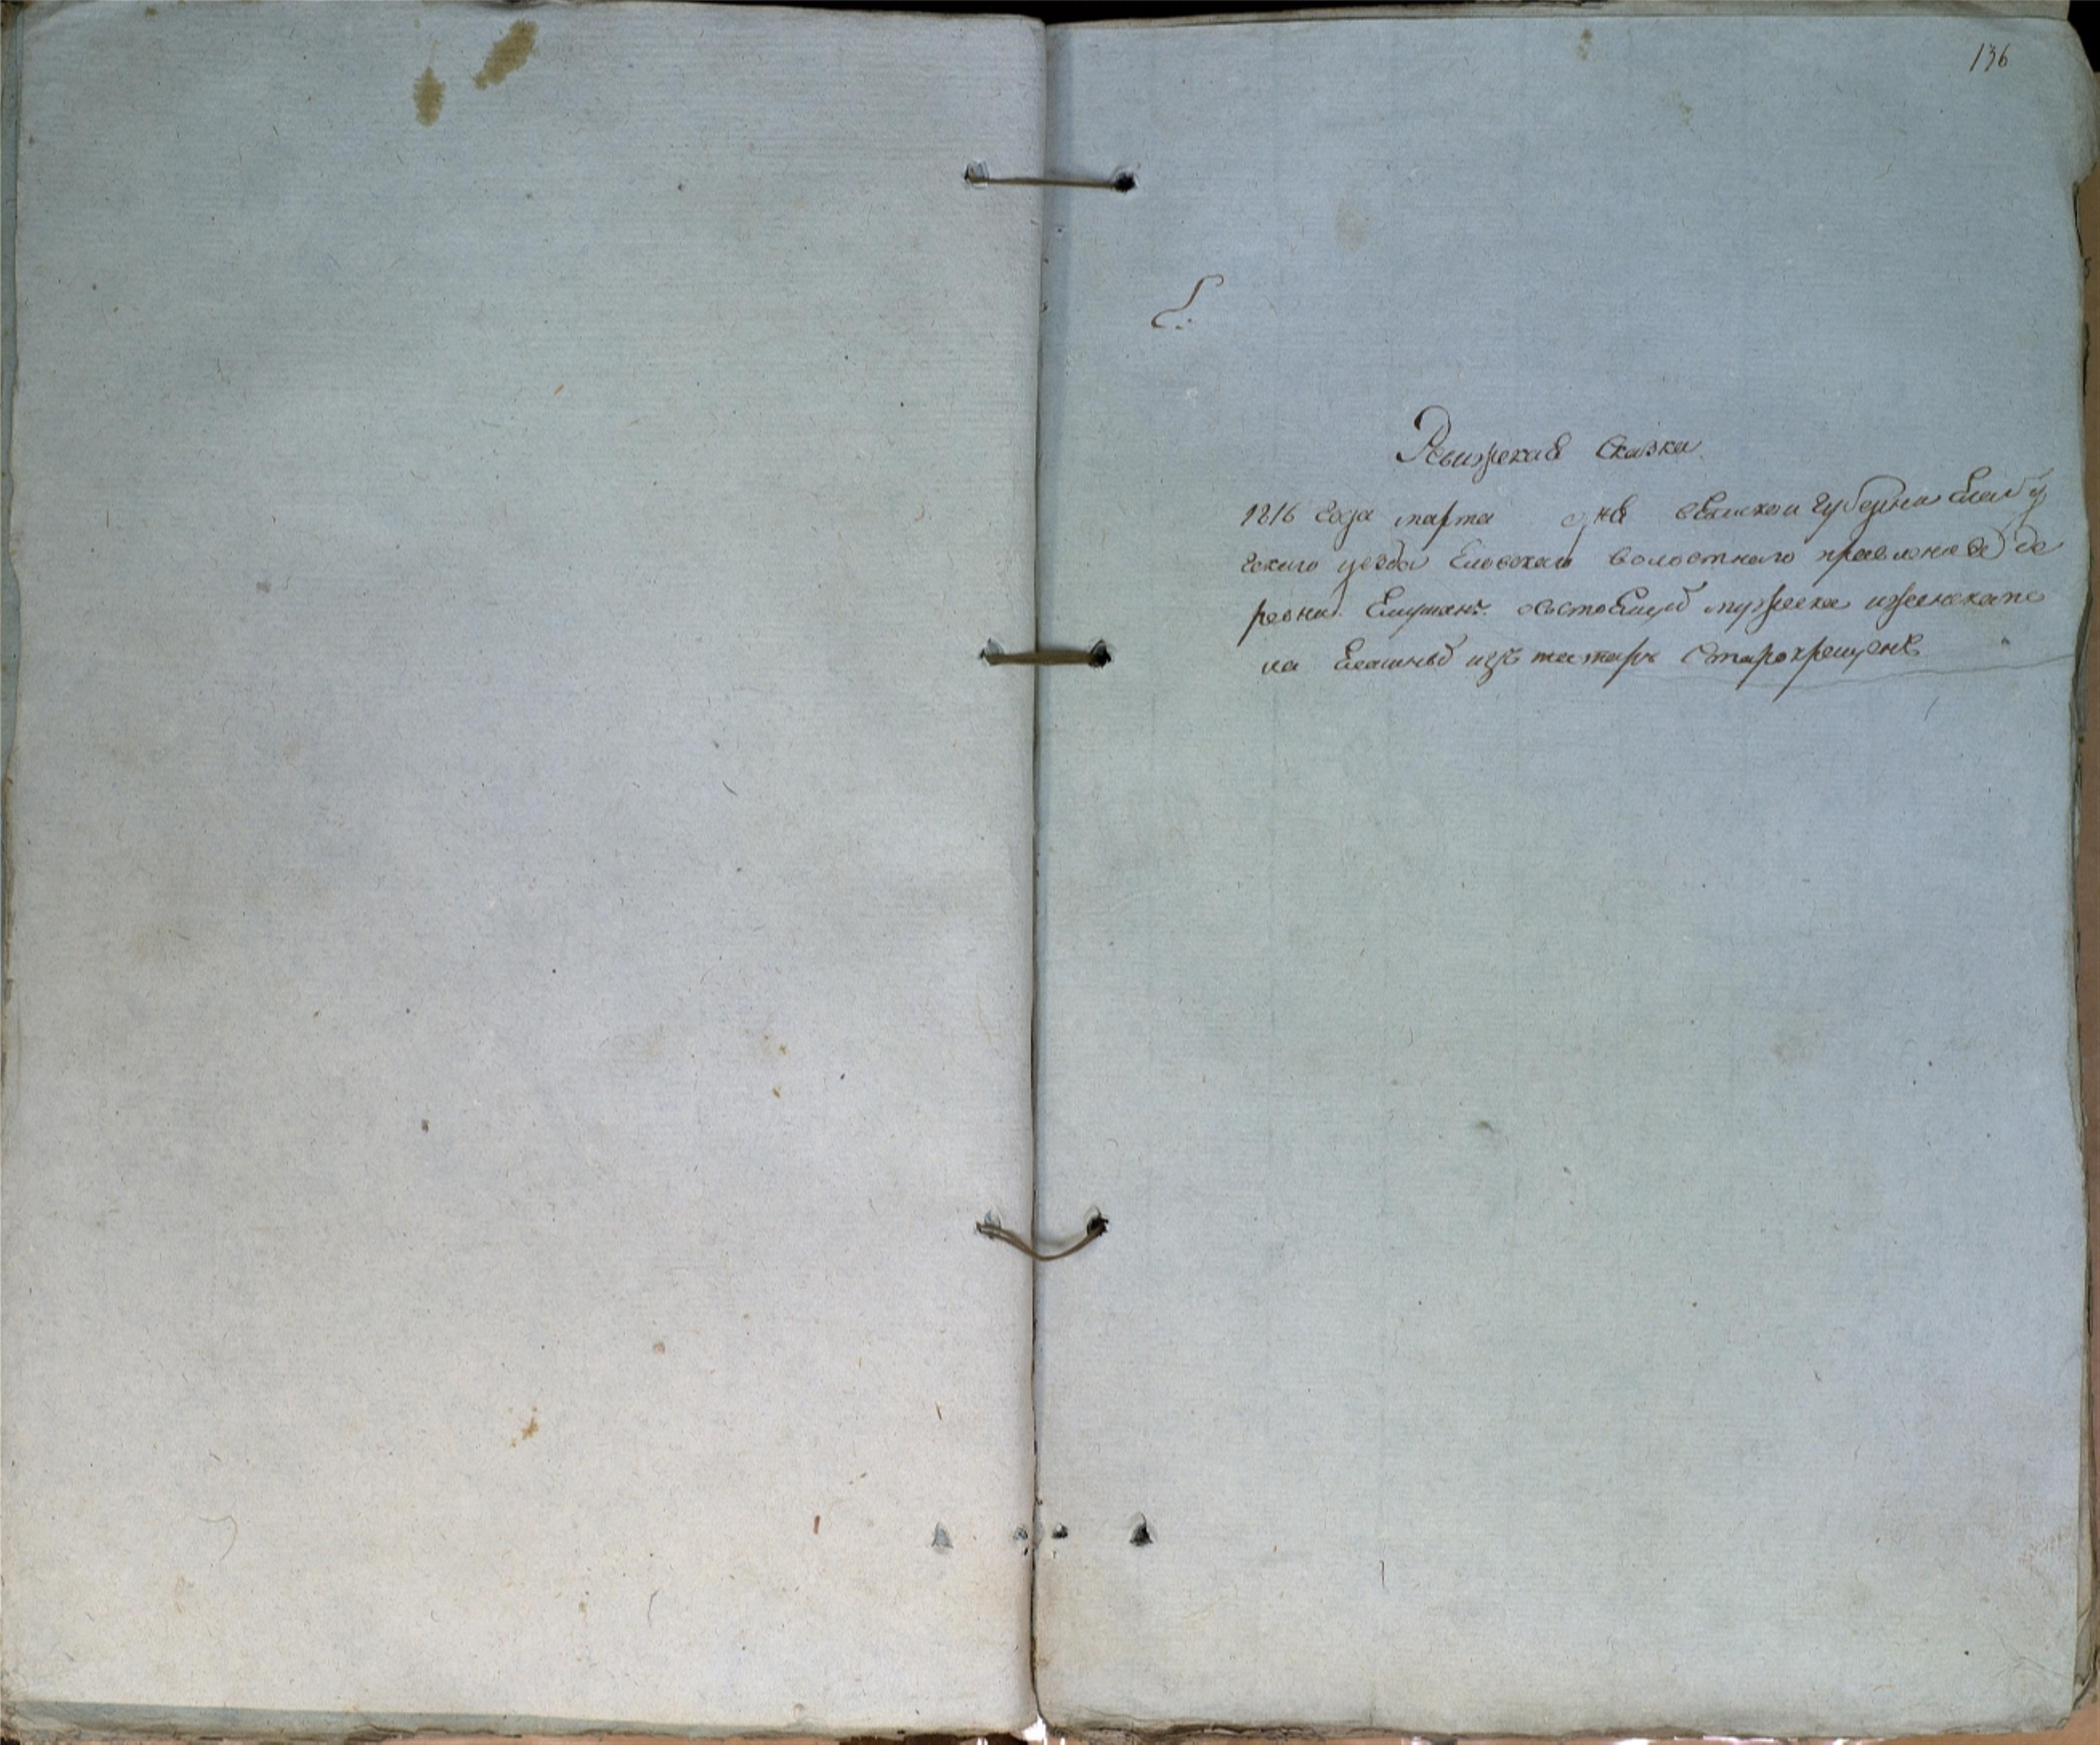 136
Ревижская Сказка
1816 года марта дня вятской губернии Елабу
гскаго уезда Еловской волостнаго правления де
ревни состоящей мужеска иженскапо
ла изъ татаръ старокрещенъ